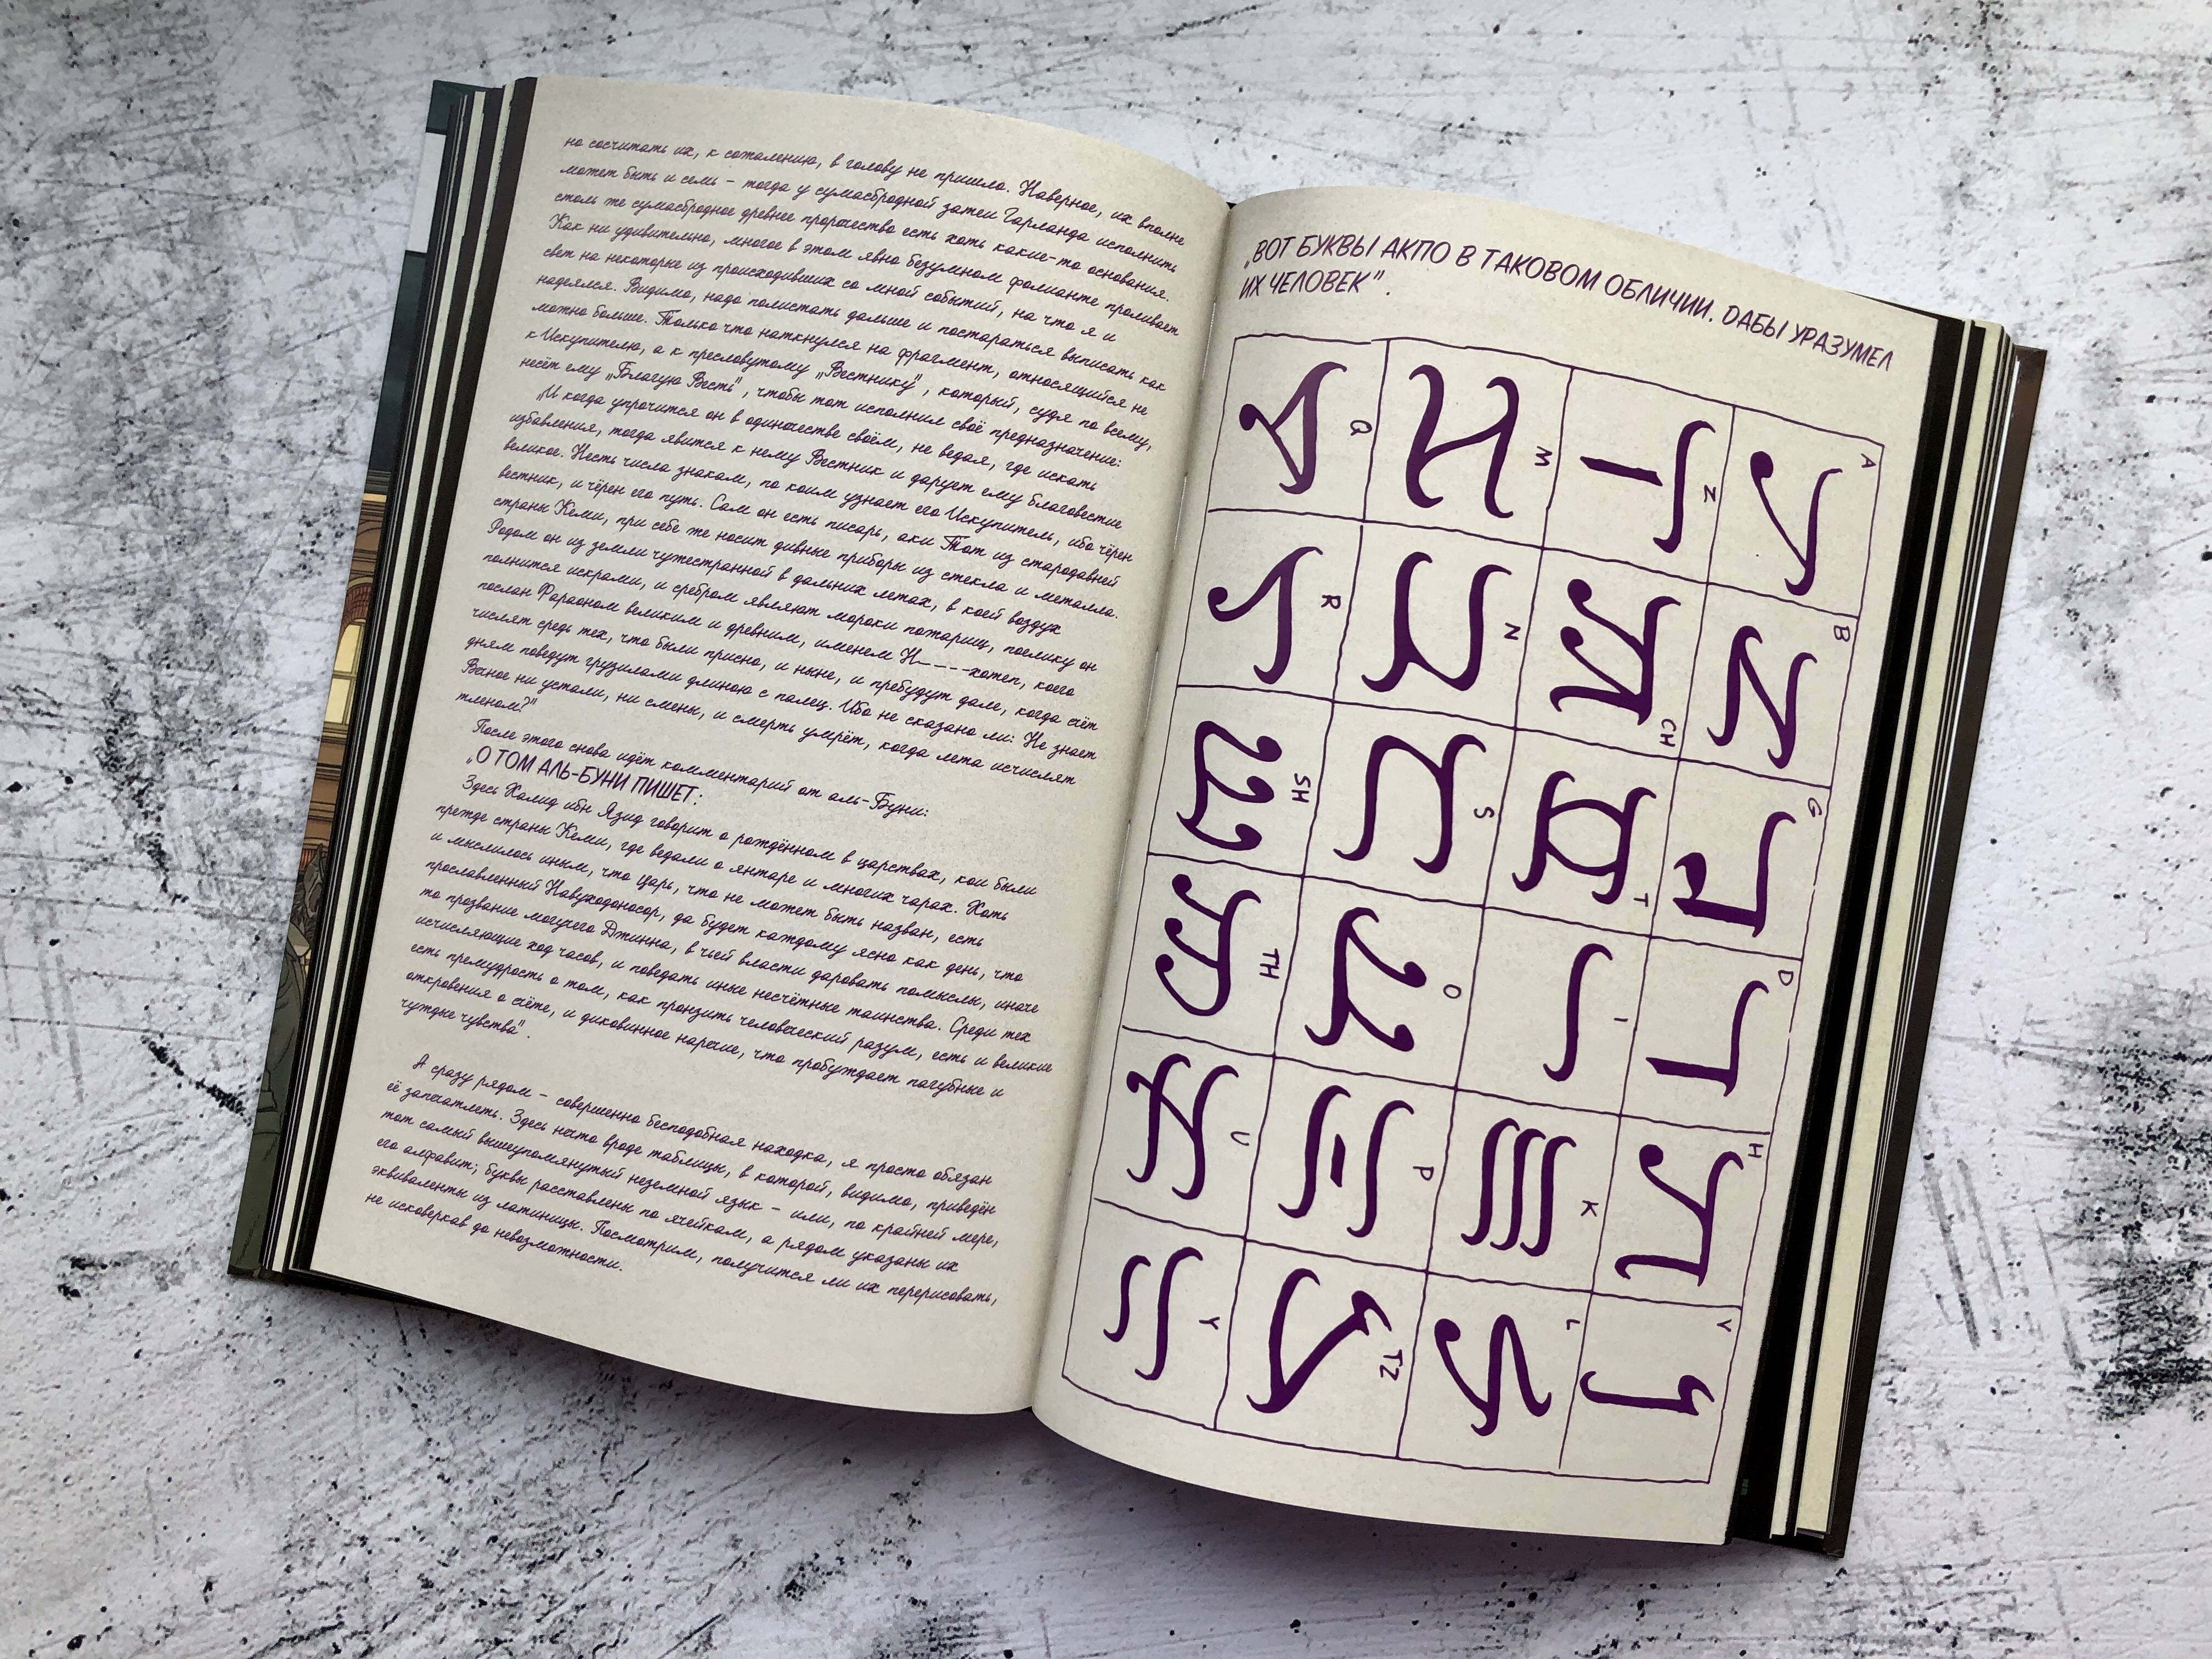 но сосчитать их, к сожалению, в голову не пришло. Наверное, их вполне
может быть и семь – тогда у сумасбродной затеи Гарланда исполнить
столь же сумасбродное древнее пророчество есть хоть какие-то основания.
Как ни удивительно, многое в этом явно безумном фолианте проливает
свет на некоторые из происходивших со мной событий, на что я и
надеялся. Видимо, надо полистать дальше и постараться выписать как
можно больше. Только что наткнулся на фрагмент, относящийся не
к Искупителю, а к пресловутому „Вестнику", который, судя по всему,
несёт ему „Благую Весть", чтобы тот исполнил своё предназначение:
„И когда упрочится он в одиночестве своём, не ведая, где искать
избавления, тогда явится к нему Вестник и дарует ему благовестие
великое. Несть числа знакам, по коим узнает его Искупитель, ибо чёрен
вестник, и чёрен его путь. Сам он есть писарь, аки Тот из стародавней
страны Кеми, при себе же носит дивные приборы из стекла и металла.
Родом он из земли чужестранной в дальних летах, в коей воздух
полнится искрами, и сребром являют мороки пожарищ, поелику он
послан Фараоном великим и древним, именем Н_---хотеп, коего
числят средь тех, что были присно, и ныне, и пребудут дале, когда счёт
дням поведут грузилами длиною с палец. Ибо не сказано ли: Не знает
Вечное ни устали, ни смены, и смерть умрёт, когда лета исчислят
тленом?"
После этого снова идёт комментарий от аль-Буни:
„О ТОМ АЛЬ-БУНИ ПИШЕТ:
Здесь Халид ибн Язид говорит о рождённом в царствах, кои были
прежде страны Кеми, где ведали о янтаре и многих чарах. Хоть
и мыслилось иным, что царь, что не может быть назван, есть
прославленный Навуходоносор, да будет каждому ясно как день, что
то прозвание могучего Джинна, в чьей власти даровать помыслы, иначе
исчисляющие ход часов, и поведать иные несчётные таинства. Среди тех
есть премудрость о том, как пронзить человеческий разум, есть и великие
откровения о счёте, и диковинное наречие, что пробуждает пагубные и
чуждые чувства".
А сразу рядом – совершенно бесподобная находка, я просто обязан
её запечатлеть. Здесь нечто вроде таблицы, в которой, видимо, приведён
тот самый вышеупомянутый неземной язык – или, по крайней мере,
его алфавит; буквы расставлены по ячейкам, а рядом указаны их
эквиваленты из латиницы. Посмотрим, получится ли их перерисовать,
не исковеркав до невозможности.
„ВОТ БУКВЫ АКЛО В ТАКОВОМ ОБЛИЧИИ. DАБЫ УРАЗУМЕЛ
ИХ ЧЕЛОВЕК".
A B G D H Y
Z CH T I K L
M N S O P TZ
Q R SH TH U Y